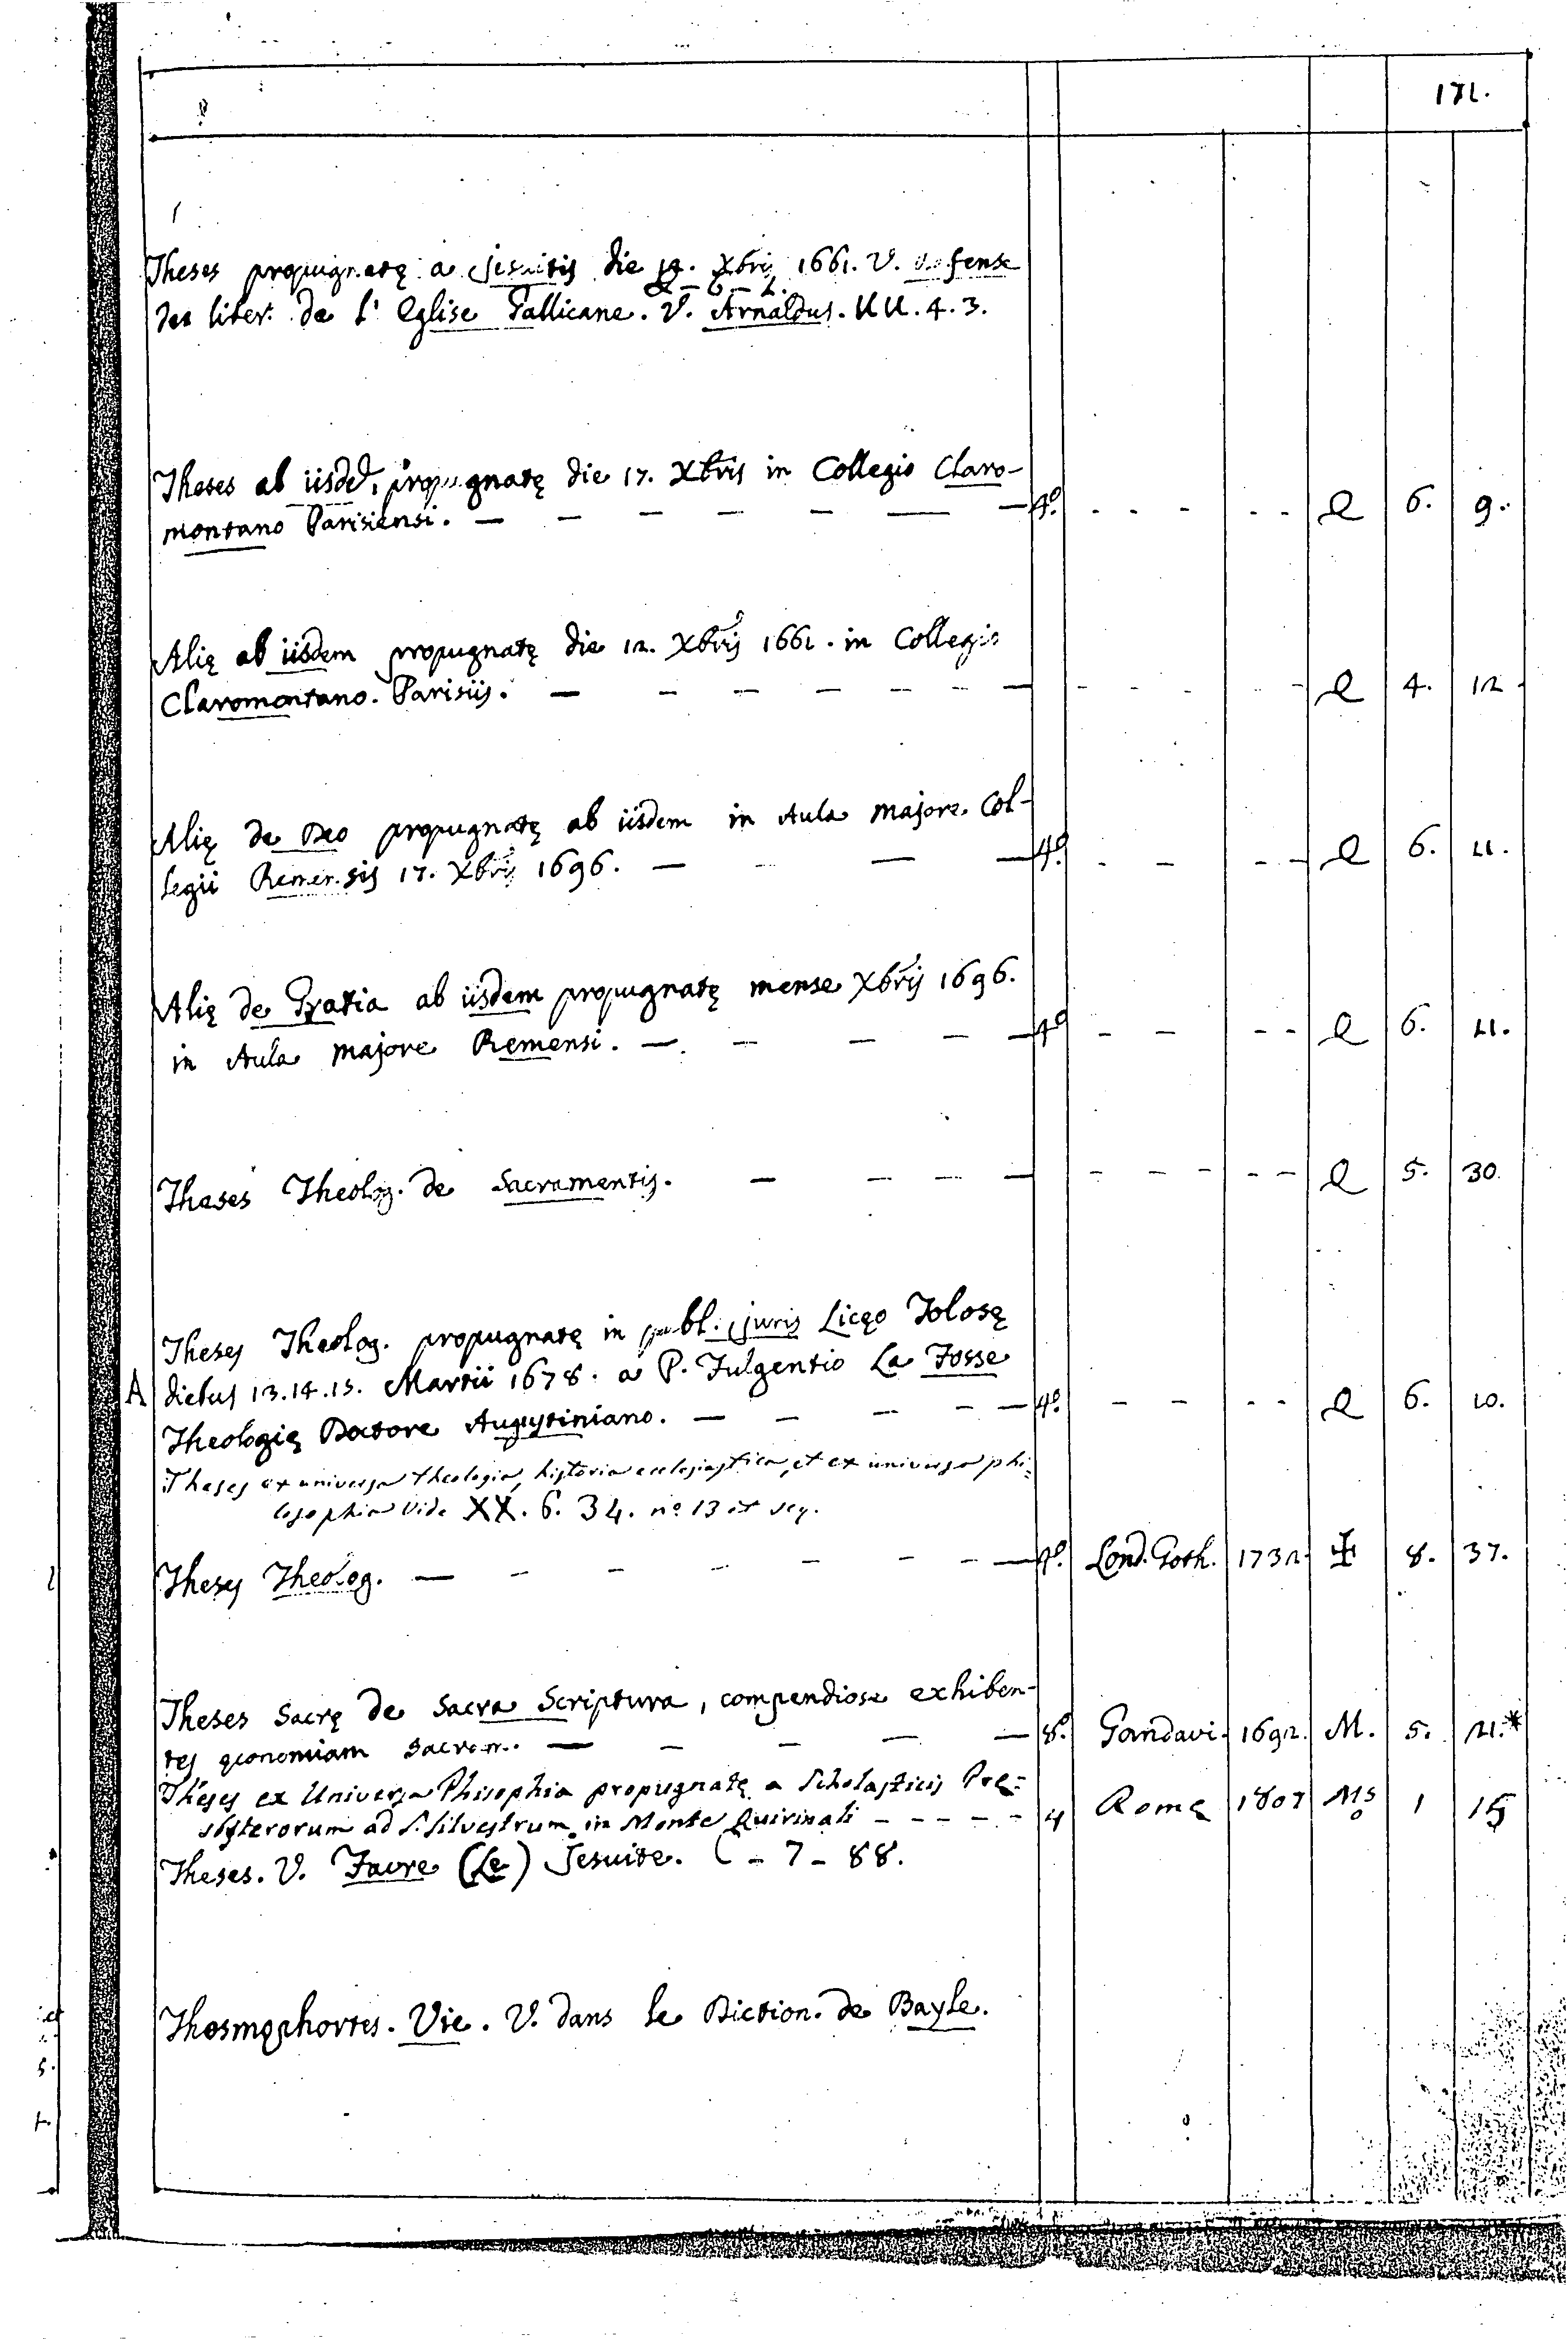 171.
Theses propugnatę a Jesuitis die 12. Xbris 1661. V. defense
Q - 6 - 2.
des liber. de l'Eglise Gallicane. V. Arnaldus. UU. 4. 3.
Theses ab iisdē, propugnatę die 17. Xbris in Collegio Claro-
montano Parisiensi. — — — — — — 4.º - - - - - Q 6. 9.
Alię ab iisdem propugnatę die 12. Xbris 1661. in Collegio
Claromontano. Parisiis. — — — — — — — - - - - - Q 4. 12.
Alię de Deo propugnatę ab iisdem in Aula majore Col-
legii Remensis 17. Xbris 1696. — — — — 4.º - - - - Q 6. 11.
Alię de Gratia ab iisdem propugnatę mense Xbris 1696.
in Aula majore Remensi. — — — — — 4.º - - - - Q 6. 11.
Theses Theolog. de Sacramentis. — — — — - - - - - Q 5. 30.
Theses Theolog. propugnatę in publ. juris Licęo Tolosę
A diebus 13. 14. 15. Martii 1678. a P. Fulgentio La Fosse
Theologię Doctore Augustiniano. — — — — — 4.º - - - - Q 6. 10.
Theses ex universa theologia, historia ecclesiastica, et ex universa phi=
losophia vide XX. 6. 34. nº 13 et seq.
Theses Theolog. — — — — — — — 4.º Lond. Goth. 1732. ✠ 8. 37.
Theses Sacrę de Sacra Scriptura, compendiose exhiben-
tes œconomiam sacram. — — — — — 8.º Gandavi. 1692. M. 5. 21.*
Theses ex Universa Phisophia propugnatę a Scholasticis Pre=
sbyterorum ad S. Silvestrum in Monte Quirinali - - - - - 4 Romę 1807 Mso 1 15
Theses. V. Favre (Le) Jesuite. C - 7 - 88.
Thosmophories. Vie. V. dans le Diction. de Bayle.